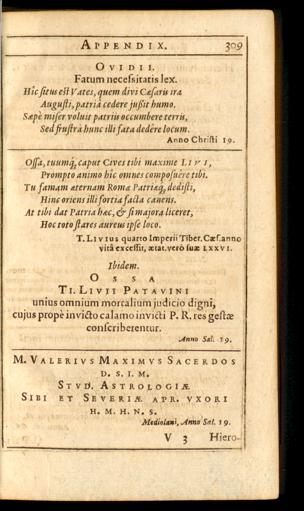 APPENDIX. 309
OVIDII.
Fatum necessitatis lex.
Hîc situs est Vates, quem divi Cæsaris ira
Augusti, patriâ cedere jußit humo.
Sæpè miser voluit patriis occumbere terris,
Sed frustrà hunc illi fata dedêre locum.
Anno Christi 19.
Ossa, tuumq́, caput Cives tibi maxime LIVI,
Prompto animo hîc omnes composuêre tibi.
Tu famam æternam Romæ Patriæq́, dedisti,
Hinc oriens illi fortia facta canens.
At tibi dat Patria hæc, & si majora liceret,
Hoc toto stares aureus ipse loco.
T. LIVIUS quarto Imperii Tiber. Cæs. anno
vitâ excessit, ætat. verò suæ LXXVI.
Ibidem.
OSSA
TI. LIVII PATAVINI
unius omnium mortalium judicio digni,
cujus propè invicto calamo invicti P. R. res gestæ
conscriberentur.
Anno Sal. 19.
M. VALERIVS MAXIMVS SACERDOS
D. S. I. M.
STVD. ASTROLOGIÆ
SIBI ET SEVERIÆ APR. VXORI
H. M. H. N. S.
Mediolani, Anno Sal. 19.
V 3 Hiero-